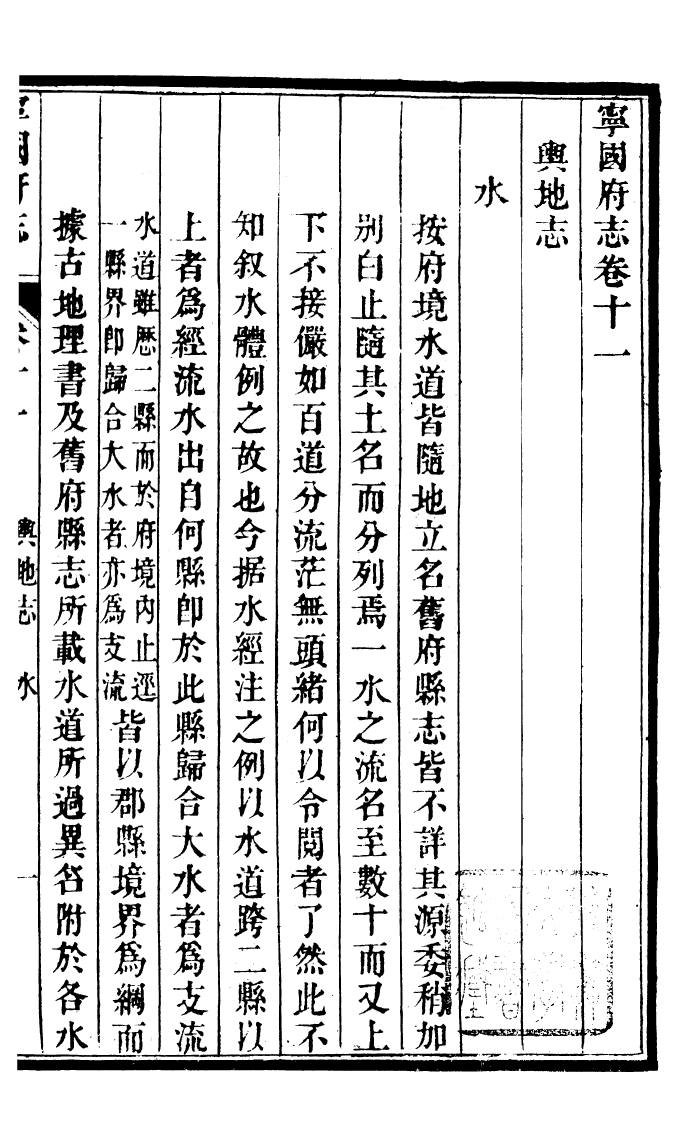 寧國府志卷十一
輿地志
水
按府境水道皆隨地立名舊府縣志皆不詳其源委稍加
別白止隨其土名而分列焉一水之流名至數十而又上
下不接儼如百道分流茫無頭緒何以令閱者了然此不
知叙水體例之故也今据水經注之例以水道跨二縣以
上者爲經流水出自何縣卽於此縣歸合大水者爲支流
水道雖歷二縣而於府境內止逕
一縣界卽歸合大水者亦爲支流
皆以郡縣境界爲綱而
據古地理書及舊府縣志所載水道所過異名附於各水
寧國府志
卷十一
輿地志 水
一